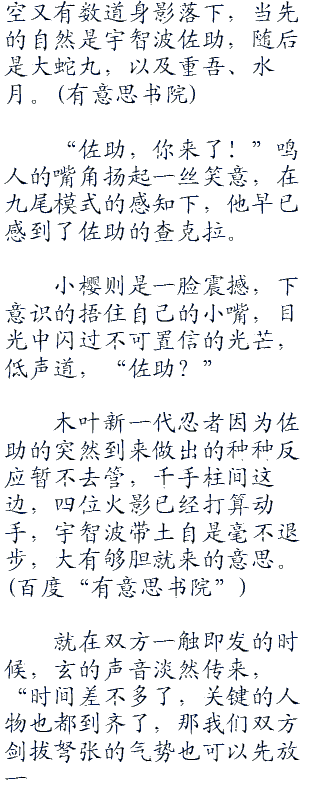 空又有数道身影落下，当先
的自然是宇智波佐助，随后
是大蛇九，以及重吾、水
月。(有意思书院)
“佐助，你来了！”鸣
人的嘴角扬起一丝笑意，在
九尾模式的感知下，他早已
感到了佐助的查克拉。
小樱则是一脸震撼，下
意识的捂住自己的小嘴，目
光中闪过不可置信的光芒，
低声道，“佐助？”
木叶新一代忍者因为佐
助的突然到来做出的种种反
应暂不去管，千手柱间这
边，四位火影已经打算动
手，宇智波带土自是毫不退
步，大有够胆就来的意思。
(百度“有意思书院”)
就在双方一触即发的时
候，玄的声音淡然传来，
“时间差不多了，关键的人
物也都到齐了，那我们双方
剑拔弩张的气势也可以先放
一